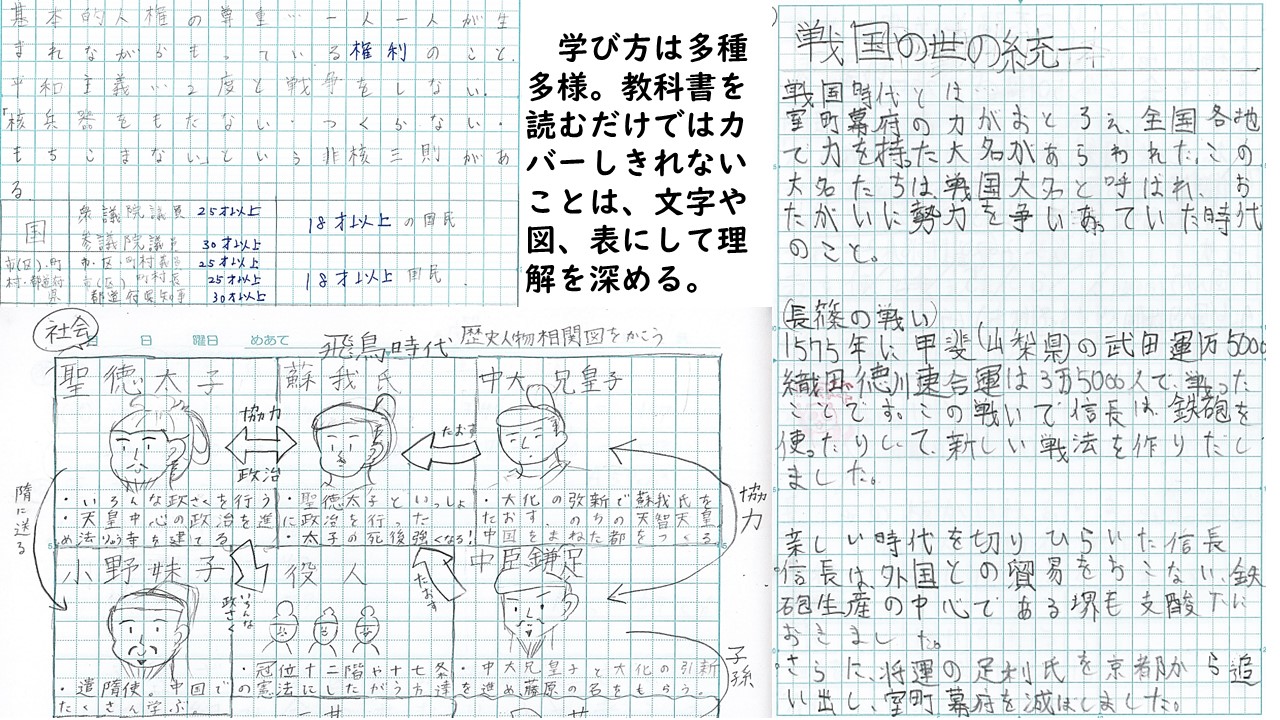 基本的人権の尊重…一人一人が生
まれながらもっている権利のこと。
平和主義…2度と戦争をしない。
「核兵器をもたない・つくらない・
もちこまない」という非核三則があ
る
国
衆議院議員 25才以上
参議院議員 30才以上
18才以上の国民
市(区)・町
村・都道府
県
市・区・町村議員 25才以上
市(区)町村長 25才以上
都道府県知事 30才以上
18才以上国民
学び方は多種
多様。教科書を
読むだけではカ
バーしきれない
ことは、文字や
図、表にして理
解を深める。
社会
月 日 曜日 めあて
飛鳥時代 歴史人物相関図をかこう
聖徳太子
蘇我氏
中大兄皇子
協力
政治
たおす
・いろんな政さくを行う
・天皇中心の政治を進
め法りゅう寺を建てる
・聖徳太子といっしょ
に政治を行った
・太子の死後強くなる!
・大化の改新で蘇我氏を
たおす。のちの天智天皇
中国をまねた都をつくる
隋に送る
協力
小野妹子
役人
中臣鎌足
いろんな
政さく
たおす
・遣隋使。中国で
たくさん学ぶ。
・冠位十二階や十七条
の憲法にしたがう方達
・中大兄皇子と大化の引新
を進め藤原の名をもらう。
子孫
戦国の世の統一
戦国時代とは…
室町幕府の力がおとろえ、全国各地
で力を持った大名があらわれた。この
大名たちは戦国大名と呼ばれ、お
たがいに勢力を争いあっていた時代
のこと。
(長篠の戦い)
1575年に甲斐(山梨県)の武田運1万5000
織田・徳川連合運は3万5000人で、戦った
ことです。この戦いで信長は、鉄砲を
使ったりして、新しい戦法を作りだし
ました。
新しい時代を切りひらいた信長
信長は、外国との貿易をおこない、鉄
砲生産の中心である堺も支酸下に
おきました。
さらに、将運の足利氏を京都から追
い出し、室町幕府を滅ぼしました。